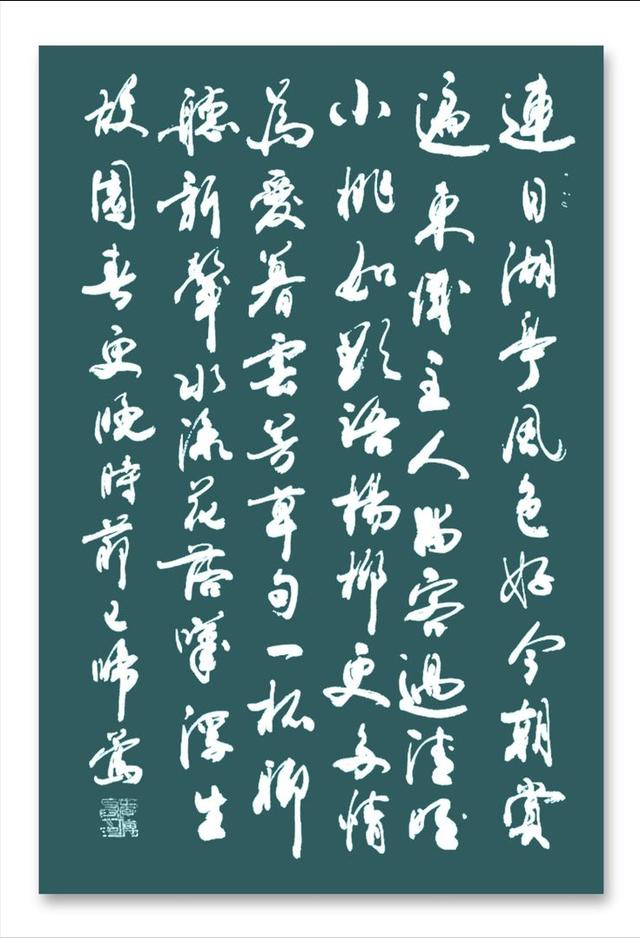 連日湖亭風色好今朝賞
遍東城主人留客過清明
小桃如欲語楊柳更多情
為愛暮雲芳草句一杯聊
聽新聲水流花落嘆浮生
故園春更晚時節已啼鶯